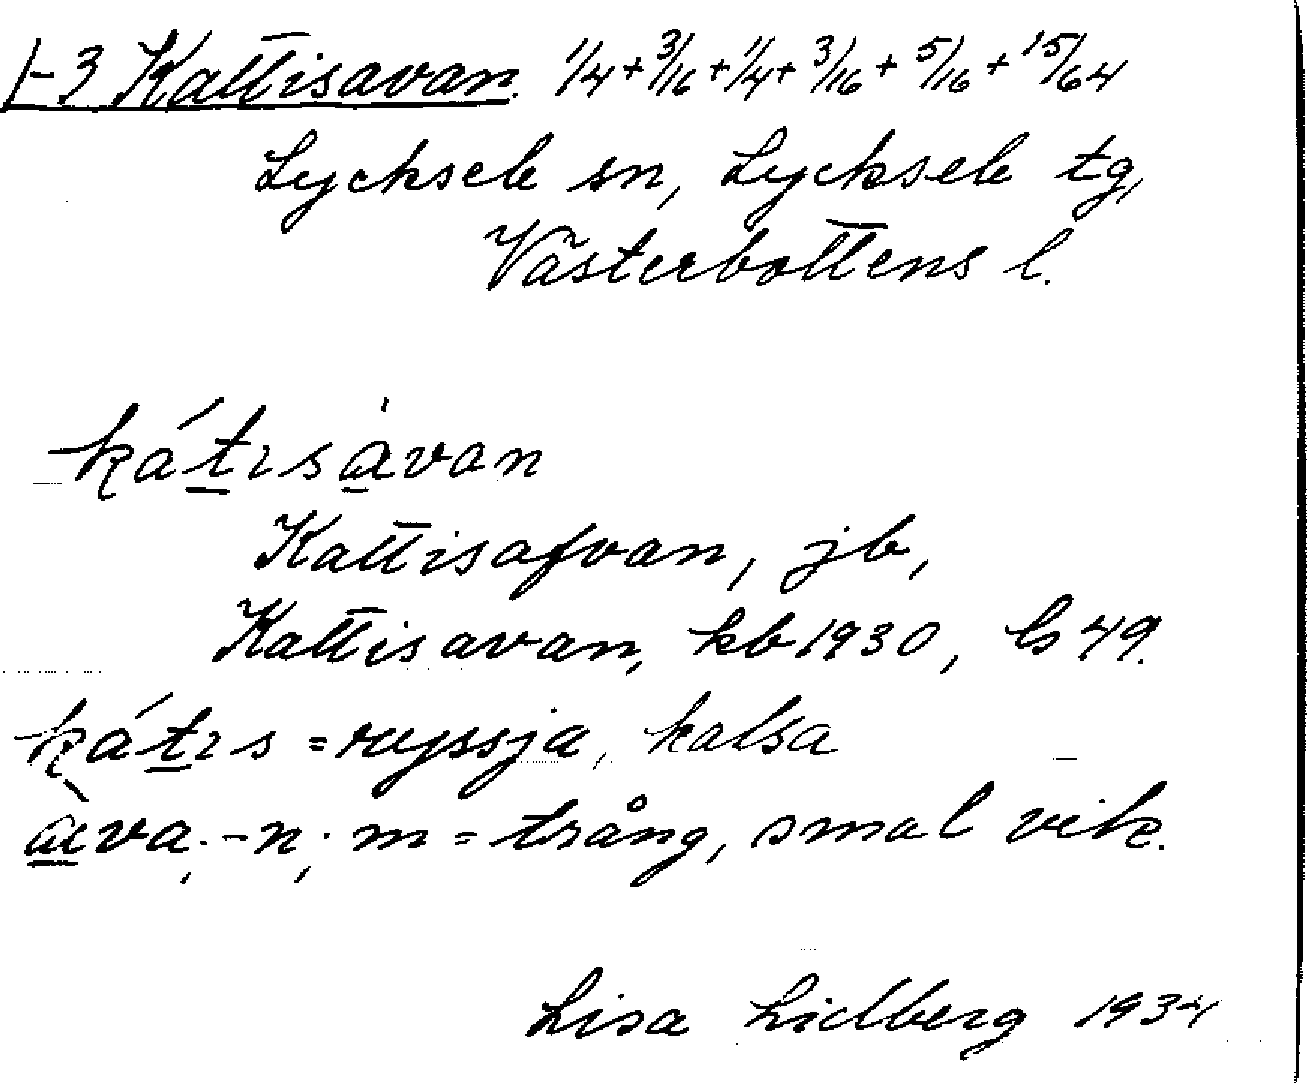 1-3 Kattisavan. 1/4+3/16+1/4+3/16+5/16+15/64
Lycksele sn, Lycksele tg,
Västerbottens l.
kátısàvan
Kattisafvan, jb,
Kattisavan, kb 1930, ls 49.
kátıs = ryssja, katsa
àva, -n; m = trång, smal vik.
Lisa Lidberg 1934